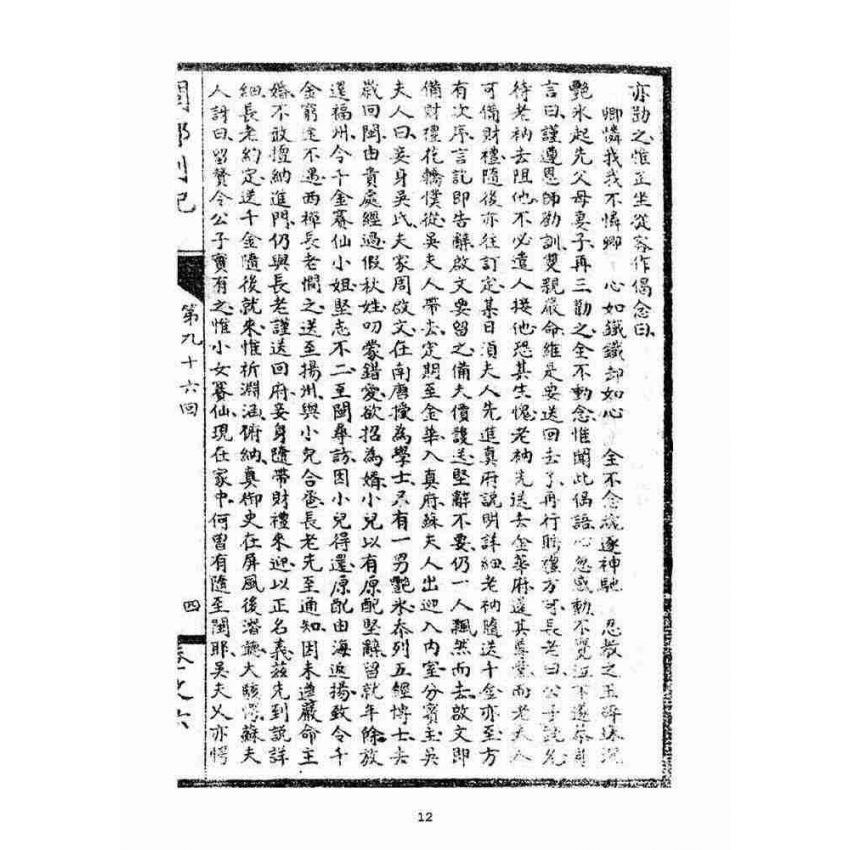 亦勸之惟正坐從容作偈念曰
卿憐我我不憐卿 心如鐵鐵卸如心 全不念 逐神馳 忍教之玉碎珠沉
艷冰起先父母妻子再三勸之全不動念惟聞此偈語心忽感動不覺泣下遂恭身
言曰謹連恩師勸訓雙親嚴命維是要送回去了再行聘禮方可長老曰公子說允
待老衲去阻他不必遣人接他恐其生愧老衲先送去金華府還其尊堂而老夫人
可備財禮隨後亦往訂定某日須夫人先進真府說明詳細老衲隨送千金亦至方
有次序言訖即告辭啟文要留之備夫價護送堅辭不要仍一人飄然而去啟文即
備財禮花轎僕從吳夫人帶 定期至金華入真府蘇夫人出迎入內室分賓主吳
夫人曰妾身吳氏夫家周啟文在南唐授為學士只有一男艷冰忝列五經博士去
歲回閩由貴處經過假秋姓叨蒙錯愛欲招為婿小兒以有原配堅辭留就年餘放
還福州令千金賽仙小姐堅志不二至閩尋訪因小兒得還原配由海返揚致令千
金窮途不遇西禪長老憫之送至揚州與小兒合卺長老先至通知因未遵嚴命主
婚不敢擅納進門仍與長老謹送回府妾身隨帶財禮來迎以正名義茲先到說詳
細長老約定送千金隨後就來惟祈淵涵俯納真御史在屏風後潛聽大駭愕蘇夫
人訝曰留贅令公子實有之惟小女賽仙現在家中何曾有隨至閩耶吳夫人亦愕
閩都別記
第九十六回
四
卷之六
12